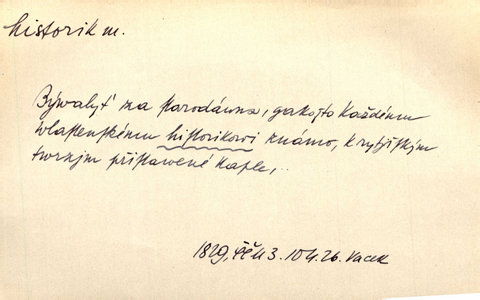 historik m.
Býwalyť za starodáwna, gakožto každému
wlastenskému historikowi známo, k rytjřským
twrzjm přistawené kaple,..
1829, ČČM 3. 104. 26. Vacek